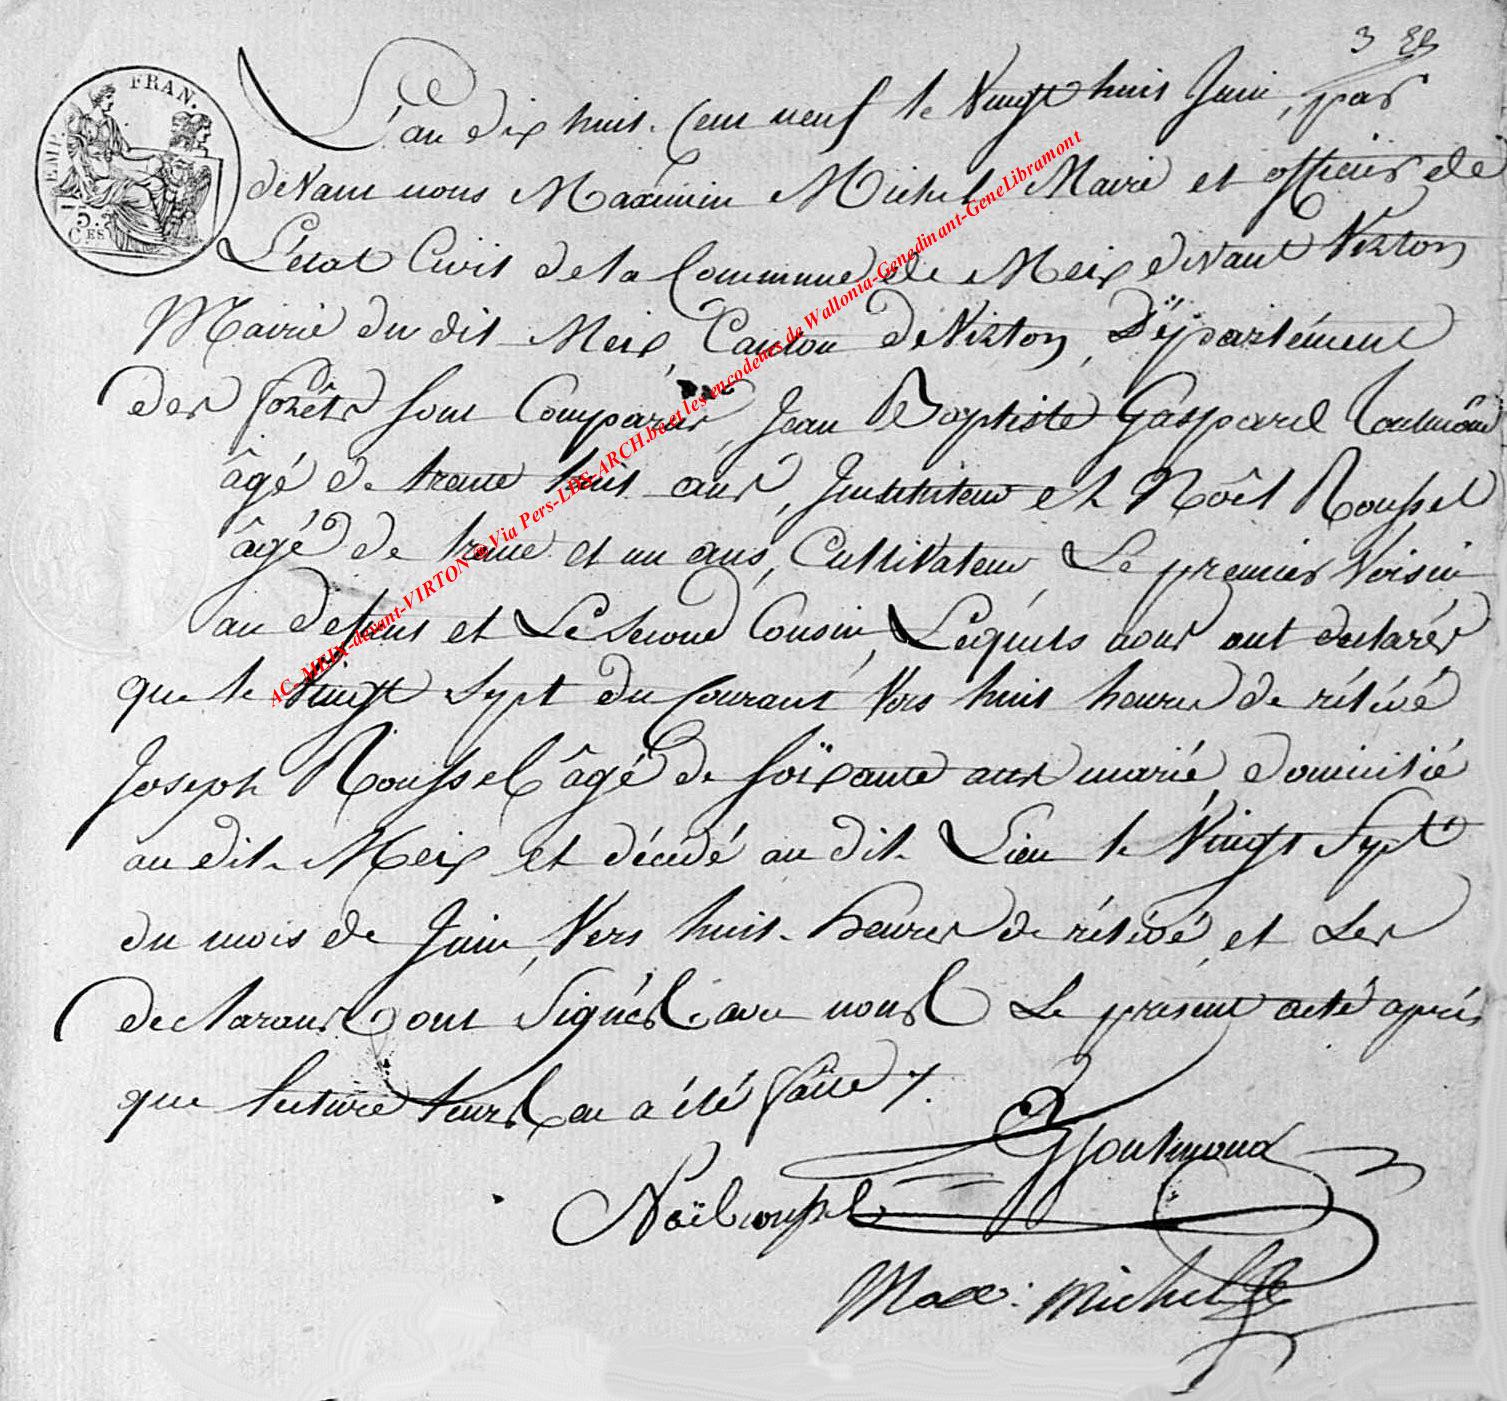 3
EMP. FRAN.
CES
L'an dix huit Cent neuf le Vingt huit Juin, par
devant nous Maximin Michel Maire et officier de
L'état Civil de la Commune de Meix devant Virton
Mairie du dit Meix, Canton de Virton, Département
des forêts sont Comparus, Jean Baptiste Gaspard
âgé de trente huit ans, Instituteur et Noêl Roussel
âgé de trente et un ans, Cultivateur Le premier Voisin
au defunt et Le second Cousin, Lesquels nous ont declarés
que le Vingt Sept du Courant Vers huit heures de rélévé
Joseph Roussel âgé de soïxante ans marié, domicilié
au dit Meix et décédé au dit Lieu le Vingt Sept
du mois de Juin, Vers huit heures de rélévé, et Les
declarans ont Signés avec nous Le présent acte après
que lecture leurs en a été faite /.
Noël roussel
Max: Michel
AC. MEIX-devant-VIRTON ® Via Pers-LDS-ARCH.be et les encodeurs de Wallonia-Genedinant-GeneLibramont